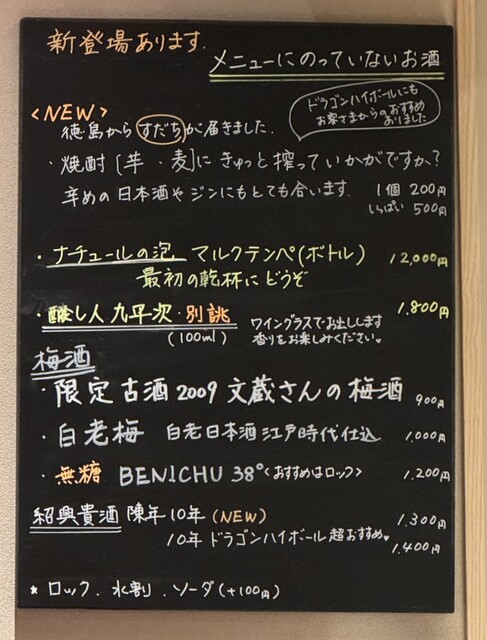 新登場あります.
メニューにのっていないお酒
<NEW>
ドラゴンハイボールにも
お客さまからのおすすめ
ありました
徳島から すだち が届きました.
・焼酎 [芋・麦]に きゅっと搾っていかがですか?
辛めの日本酒やジンにもとても合います. 1個 200円
しぼり 500円
・ナチュールの泡. マルクテンペ(ボトル) 12,000円
最初の乾杯にどうぞ
・醸し人九平次・別誂 1.800円
(100ml) ワイングラスでお出しします
香りをお楽しみください♥
梅酒
・限定古酒2009 文蔵さんの梅酒 900円
・白老梅 白老日本酒江戸時代仕込 1,000円
・無糖 BENICHU 38°<おすすめはロック> 1,200円
紹興貴酒 陳年10年 (NEW) 1,300円
10年 ドラゴンハイボール 超おすすめ♥ 1,400円
★ ロック. 水割. ソーダ(+100円)